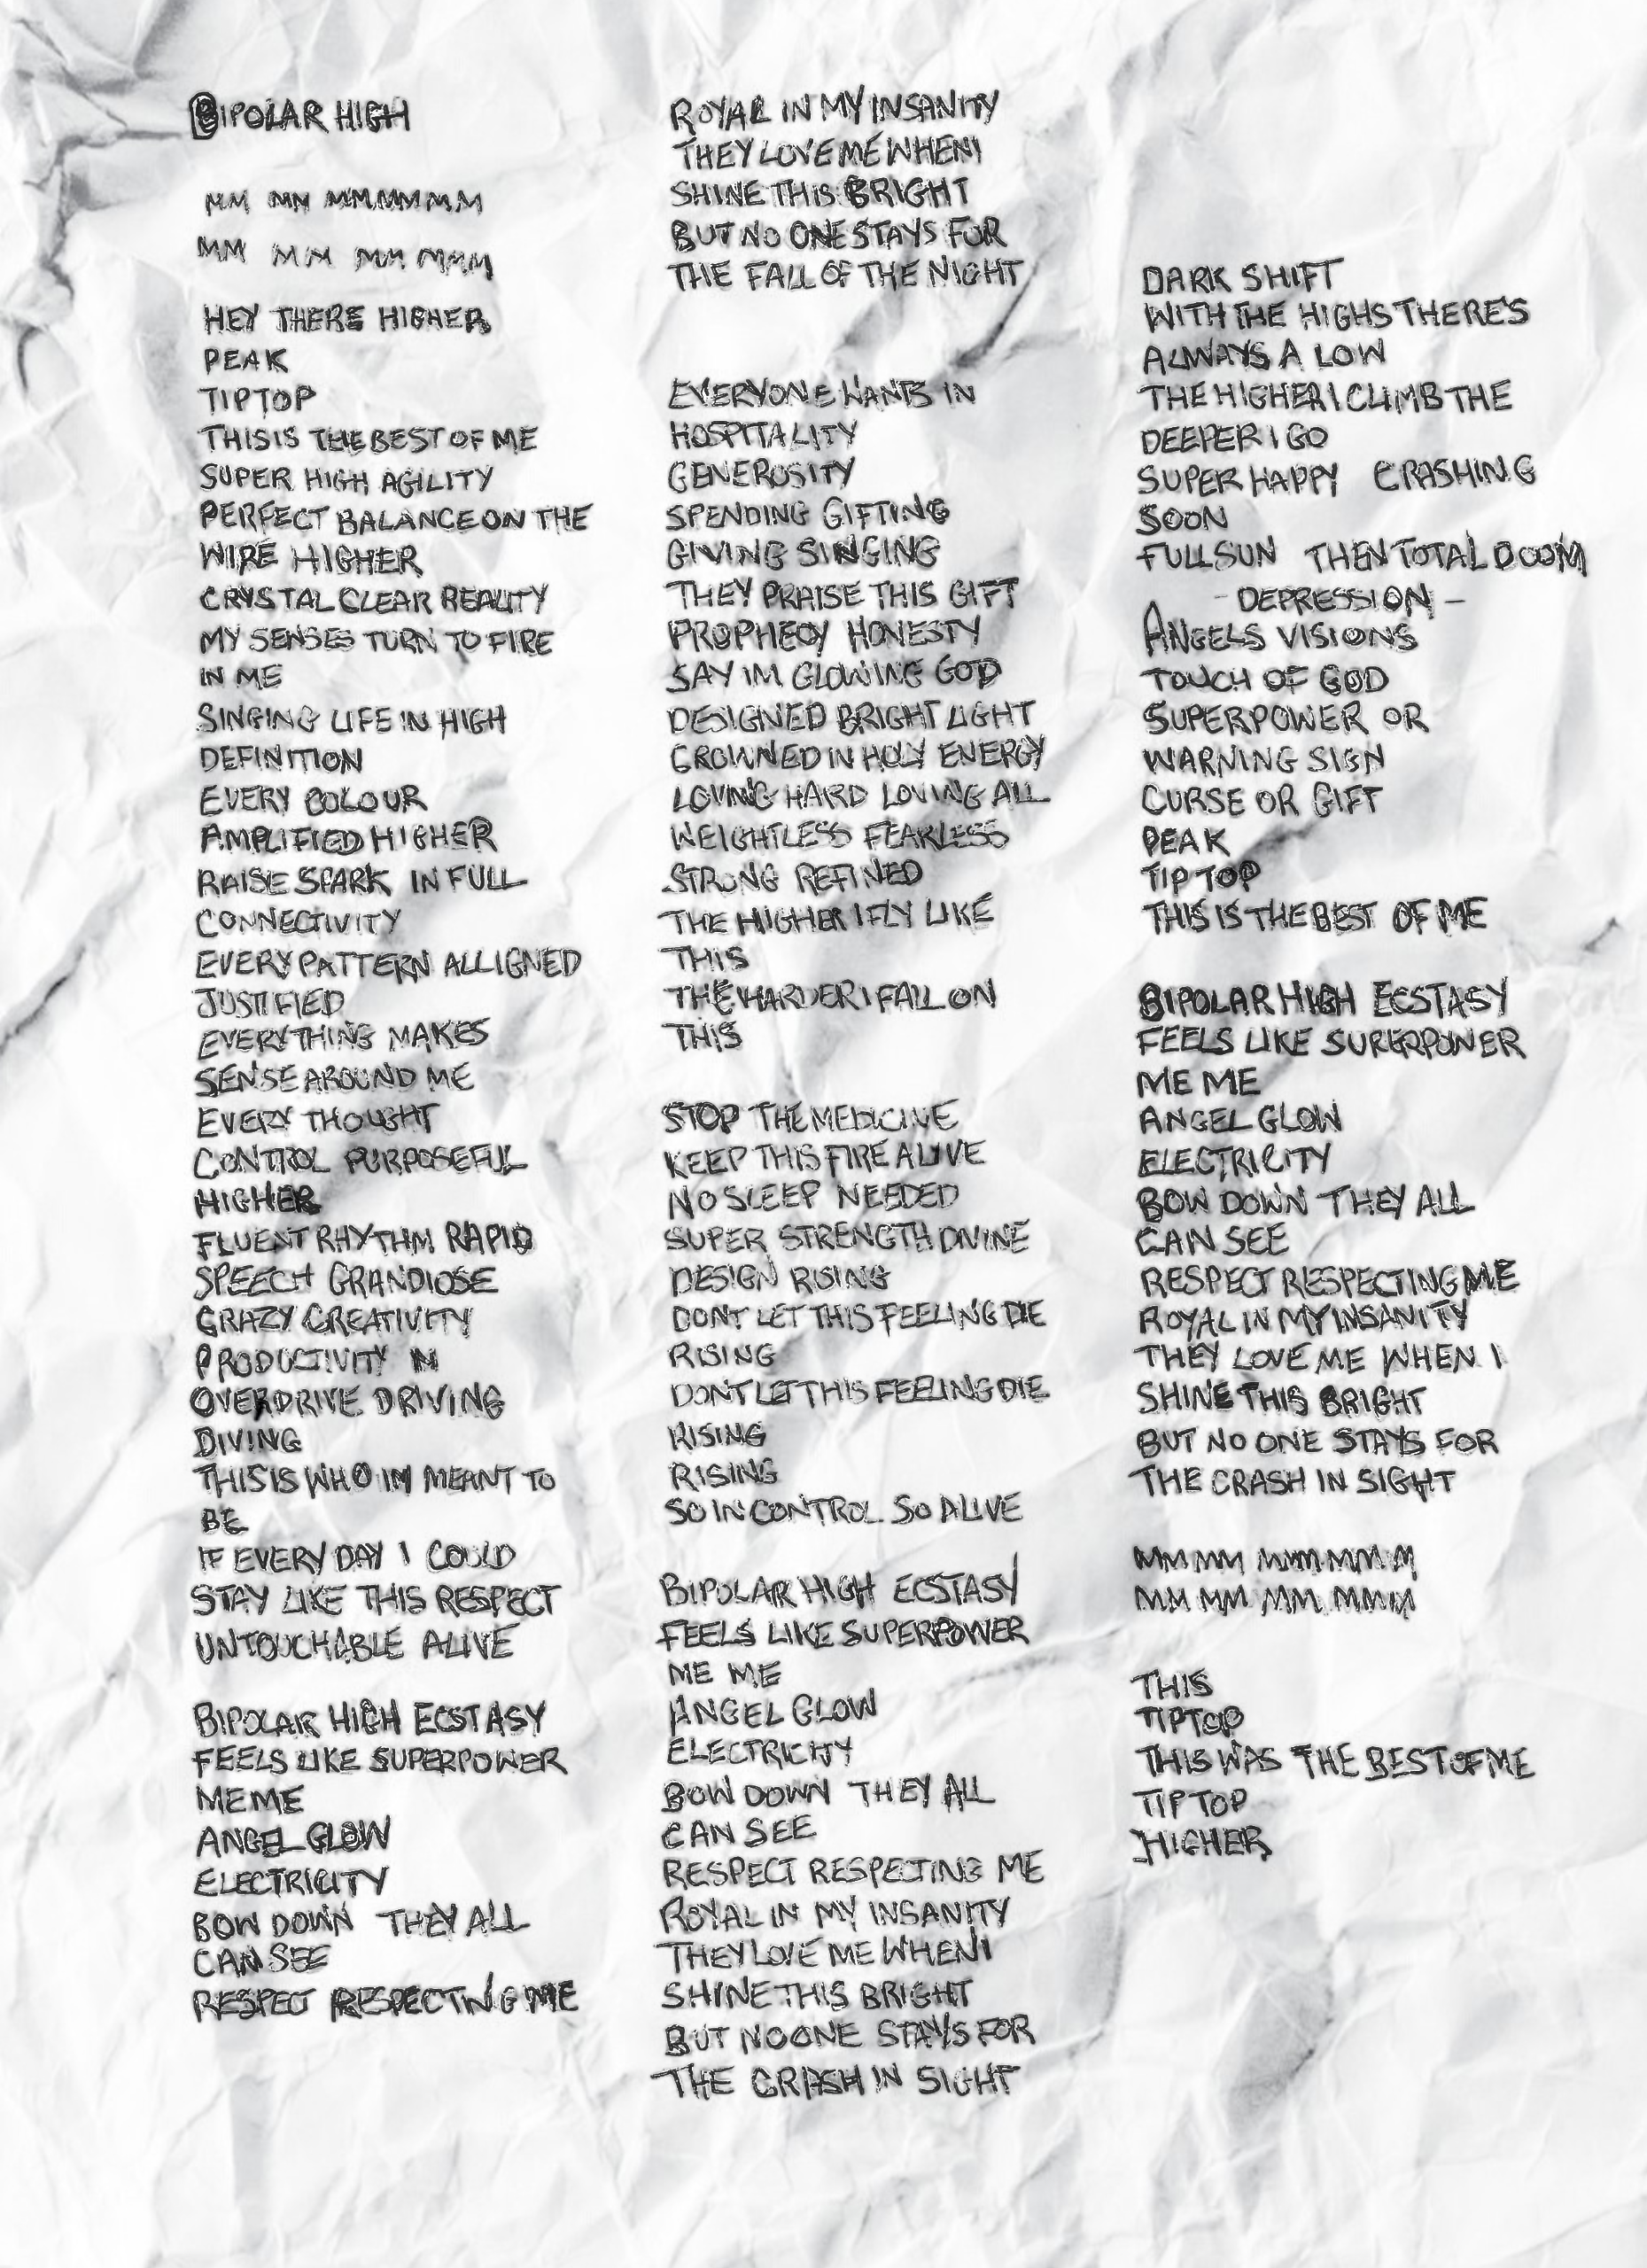 BIPOLAR HIGH
MM MM MMMMMM
MM MM MM MMM
HEY THERE HIGHER
PEAK
TIPTOP
THIS IS THE BEST OF ME
SUPER HIGH AGILITY
PERFECT BALANCE ON THE
WIRE HIGHER
CRYSTAL CLEAR REALITY
MY SENSES TURN TO FIRE
IN ME
SINGING LIFE IN HIGH
DEFINITION
EVERY COLOUR
AMPLIFIED HIGHER
RAISE SPARK IN FULL
CONNECTIVITY
EVERY PATTERN ALLIGNED
JUSTIFIED
EVERYTHING MAKES
SENSE AROUND ME
EVERY THOUGHT
CONTROL PURPOSEFUL
HIGHER
FLUENT RHYTHM RAPID
SPEECH GRANDIOSE
CRAZY CREATIVITY
PRODUCTIVITY IN
OVERDRIVE DRIVING
DIVING
THIS IS WHO IM MEANT TO
BE
IF EVERY DAY I COULD
STAY LIKE THIS RESPECT
UNTOUCHABLE ALIVE
BIPOLAR HIGH ECSTASY
FEELS LIKE SUPERPOWER
ME ME
ANGEL GLOW
ELECTRICITY
BOW DOWN THEY ALL
CAN SEE
RESPECT RESPECTING ME
ROYAL IN MY INSANITY
THEY LOVE ME WHEN I
SHINE THIS BRIGHT
BUT NO ONE STAYS FOR
THE FALL OF THE NIGHT
EVERYONE WANTS IN
HOSPITALITY
GENEROSITY
SPENDING GIFTING
GIVING SINGING
THEY PRAISE THIS GIFT
PROPHECY HONESTY
SAY IM GLOWING GOD
DESIGNED BRIGHT LIGHT
CROWNED IN HOLY ENERGY
LOVING HARD LOVING ALL
WEIGHTLESS FEARLESS
STRONG REFINED
THE HIGHER I FLY LIKE
THIS
THE HARDER I FALL ON
THIS
STOP THE MEDICINE
KEEP THIS FIRE ALIVE
NO SLEEP NEEDED
SUPER STRENGTH DIVINE
DESIGN RISING
DONT LET THIS FEELING DIE
RISING
DONT LET THIS FEELING DIE
RISING
RISING
SO IN CONTROL SO ALIVE
BIPOLAR HIGH ECSTASY
FEELS LIKE SUPERPOWER
ME ME
ANGEL GLOW
ELECTRICITY
BOW DOWN THEY ALL
CAN SEE
RESPECT RESPECTING ME
ROYAL IN MY INSANITY
THEY LOVE ME WHEN I
SHINE THIS BRIGHT
BUT NO ONE STAYS FOR
THE CRASH IN SIGHT
DARK SHIFT
WITH THE HIGHS THERES
ALWAYS A LOW
THE HIGHER I CLIMB THE
DEEPER I GO
SUPER HAPPY CRASHING
SOON
FULL SUN THEN TOTAL DOOM
- DEPRESSION -
ANGELS VISIONS
TOUCH OF GOD
SUPERPOWER OR
WARNING SIGN
CURSE OR GIFT
PEAK
TIPTOP
THIS IS THE BEST OF ME
BIPOLAR HIGH ECSTASY
FEELS LIKE SUPERPOWER
ME ME
ANGEL GLOW
ELECTRICITY
BOW DOWN THEY ALL
CAN SEE
RESPECT RESPECTING ME
ROYAL IN MY INSANITY
THEY LOVE ME WHEN I
SHINE THIS BRIGHT
BUT NO ONE STAYS FOR
THE CRASH IN SIGHT
MM MM MMMMMM
MM MM MM MMM
THIS
TIPTOP
THIS WAS THE BEST OF ME
TIPTOP
HIGHER